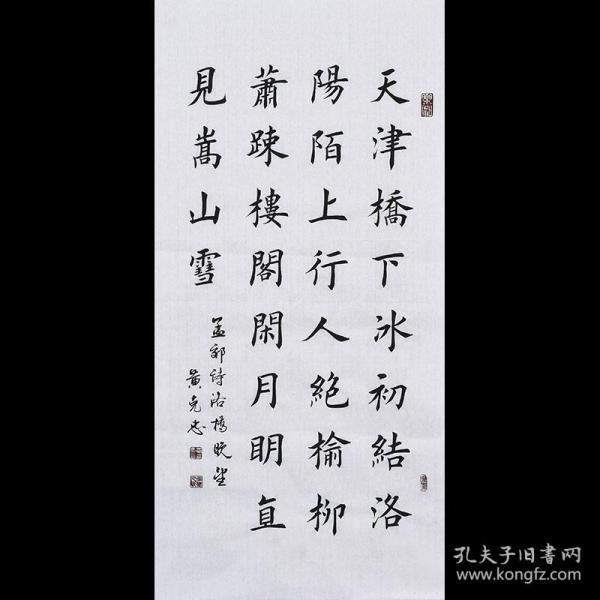 天津橋下冰初結洛
陽陌上行人絶榆柳
蕭踈樓閣閑月明直
見嵩山雪
孟郊詩洛橋晚望
黄克忠
孔夫子旧書网
www.kongfz.com